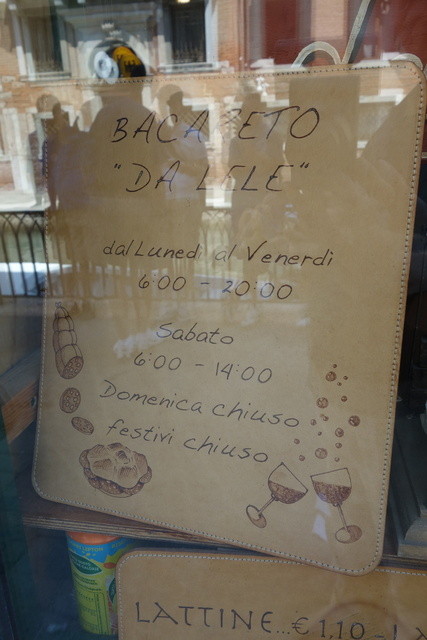 BACARETO
"DA LELE"
dal Lunedì al Venerdì
6:00 - 20:00
Sabato
6:00 - 14:00
Domenica chiuso
festivi chiuso
LATTINE...€1,10